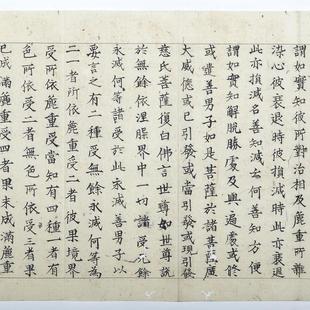 謂如實知彼所對治相及麁重所雜
染心彼衰退時彼損減時此亦衰退
此亦損減名善知滅云何善知方便
謂如實知解脫勝處及與遍處或修
或遣善男子如是菩薩於諸菩薩廣
大威德或已引發或當引發或現引發
慈氏菩薩復白佛言世尊如世尊說
於無餘依涅槃界中一切諸受无餘
永滅何等諸受於此永滅善男子以
要言之有二種受無餘永滅何等為
二一者所依麁重受二者彼果境界
受所依麁重受當知有四種一者有
色所依受二者無色所依受三者果
已成滿麁重受四者果未成滿麁重